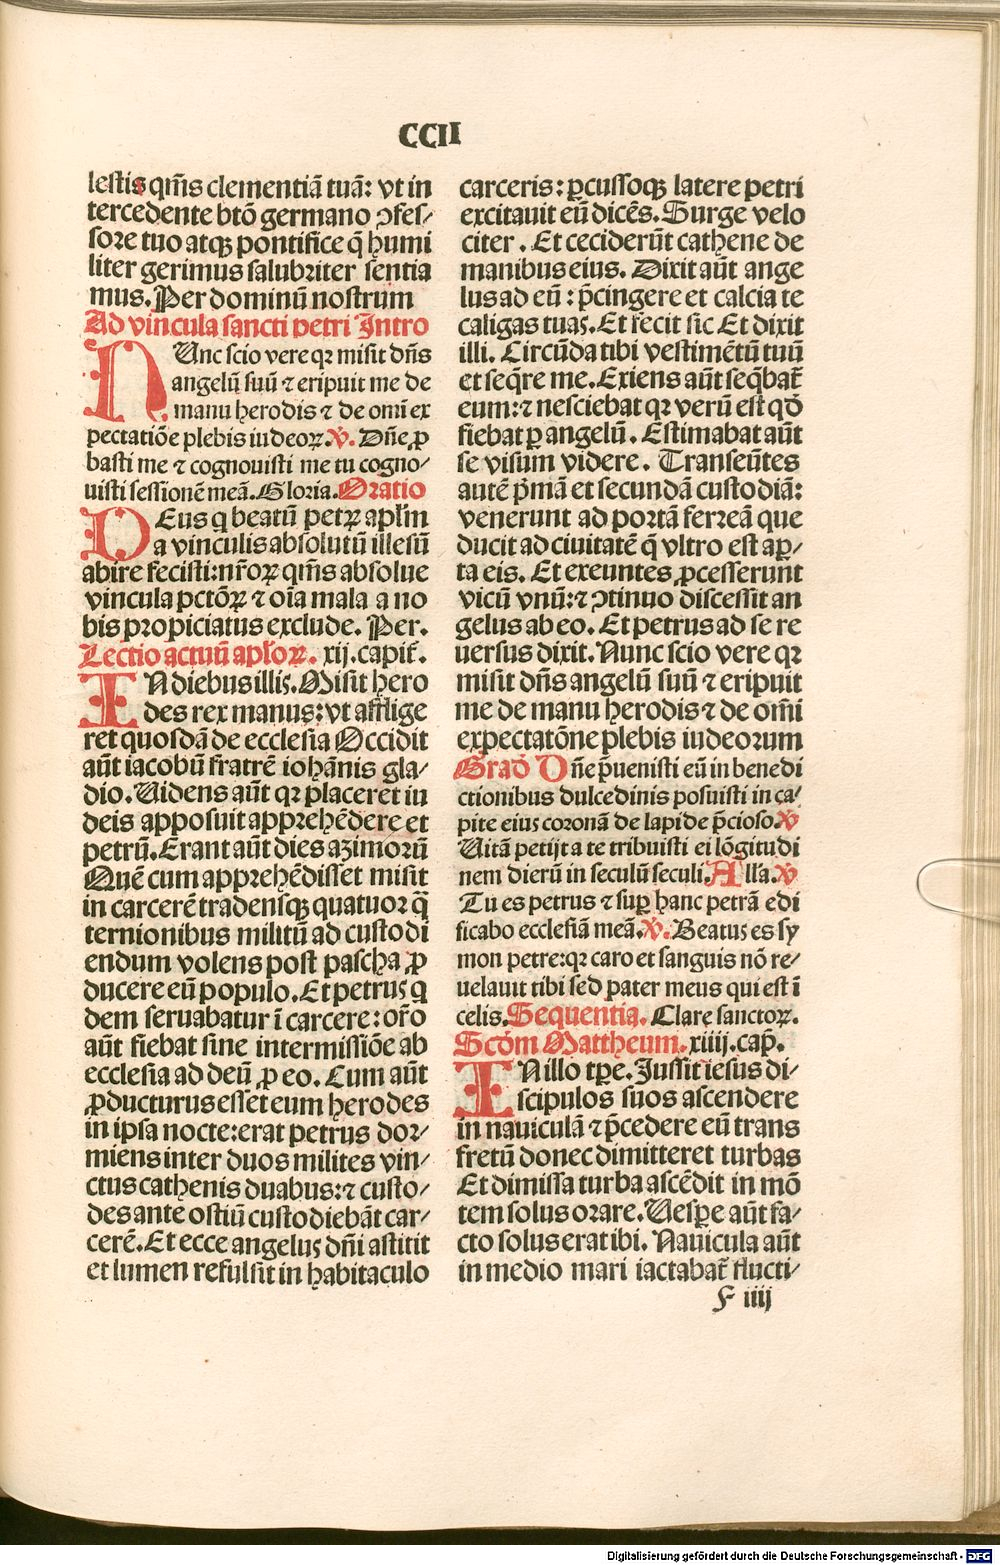 CCII
lestis qm̄s clementiā tuā: vt in
tercedente btō germano ꝯfes⸗
sore tuo atqꝫ pontifice q̄ humi
liter gerimus salubriter sentia
mus. Per dominū nostrum
Ad vincula sancti petri Intro
NUnc scio vere qꝛ misit dn̄s
angelū suū ⁊ eripuit me de
manu herodis ⁊ de omī ex
pectatiōe plebis iudeoꝝ. V̇. Dn̄e ꝓ
basti me ⁊ cognouisti me tu cogno⸗
uisti sessionē meā. Gloria. Oratio
DEus q beatū petꝝ apl̄m
a vinculis absolutū illesū
abire fecisti: nr̄oꝝ qm̄s absolue
vincula pctōꝝ ⁊ oīa mala a no
bis propiciatus exclude. Per.
Lectio actuū apl̄oꝝ. xij. capit̄.
IN diebus illis. Misit hero
des rex manus: vt afflige
ret quosdā de ecclesia Occidit
aūt iacobū fratrē iohānis gla⸗
dio. Videns aūt qꝛ placeret iu
deis apposuit apprehēdere et
petrū. Erant aūt dies azimorū
Quē cum apprehēdisset misit
in carcerē tradensqꝫ quatuor q̄
ternionibus militū ad custodi
endum volens post pascha ꝓ
ducere eū populo. Et petrus q
dem seruabatur ī carcere: or̄o
aūt fiebat sine intermissiōe ab
ecclesia ad deū ꝓ eo. Cum aūt
ꝓducturus esset eum herodes
in ipsa nocte: erat petrus dor⸗
miens inter duos milites vin⸗
ctus cathenis duabus: ⁊ custo⸗
des ante ostiū custodiebāt car⸗
cerē. Et ecce angelus dn̄i astitit
et lumen refulsit in habitaculo
carceris: ꝑcussoqꝫ latere petri
excitauit eū dicēs. Surge velo
citer. Et ceciderūt cathene de
manibus eius. Dixit aūt ange
lus ad eū: p̄cingere et calcia te
caligas tuas. Et fecit sic Et dixit
illi. Circūda tibi vestimētū tuū
et seq̄re me. Exiens aūt seq̄bat̄
eum: ⁊ nesciebat qꝛ verū est qd̄
fiebat ꝑ angelū. Estimabat aūt
se visum videre. Transeūtes
autē p̄mā et secundā custodiā:
venerunt ad portā ferreā que
ducit ad ciuitatē q̄ vltro est aꝑ⸗
ta eis. Et exeuntes ꝓcesserunt
vicū vnū: ⁊ ꝯtinuo discessit an
gelus ab eo. Et petrus ad se re
uersus dixit. Nunc scio vere qꝛ
misit dn̄s angelū suū ⁊ eripuit
me de manu herodis ⁊ de omī
expectatōne plebis iudeorum
Grad̄ Dn̄e p̄uenisti eū in benedi
ctionibus dulcedinis posuisti in ca⸗
pite eius coronā de lapide p̄cioso. V̇
Vitā petijt a te tribuisti ei lōgitudi
nem dierū in seculū seculi. All̄a. V̇
Tu es petrus ⁊ suꝑ hanc petrā edi
ficabo ecclesiā meā. V̇. Beatus es sy
mon petre: qꝛ caro et sanguis nō re⸗
uelauit tibi sed pater meus qui est ī
celis. Sequentia. Clare sanctoꝝ.
Scd̄m Mattheum. xiiij. cap̄.
IN illo tꝑe. Jussit iesus di⸗
scipulos suos ascendere
in nauiculā ⁊ p̄cedere eū trans
fretū donec dimitteret turbas
Et dimissa turba ascēdit in mō
tem solus orare. Vesꝑe aūt fa⸗
cto solus erat ibi. Nauicula aūt
in medio mari iactabat̄ flucti⸗
F iiij
Digitalisierung gefördert durch die Deutsche Forschungsgemeinschaft - DFG